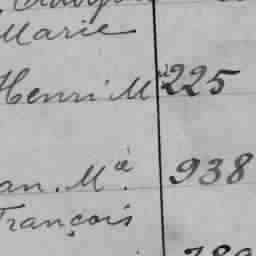 Marie
Henri M 225
an. Mie. 938
François